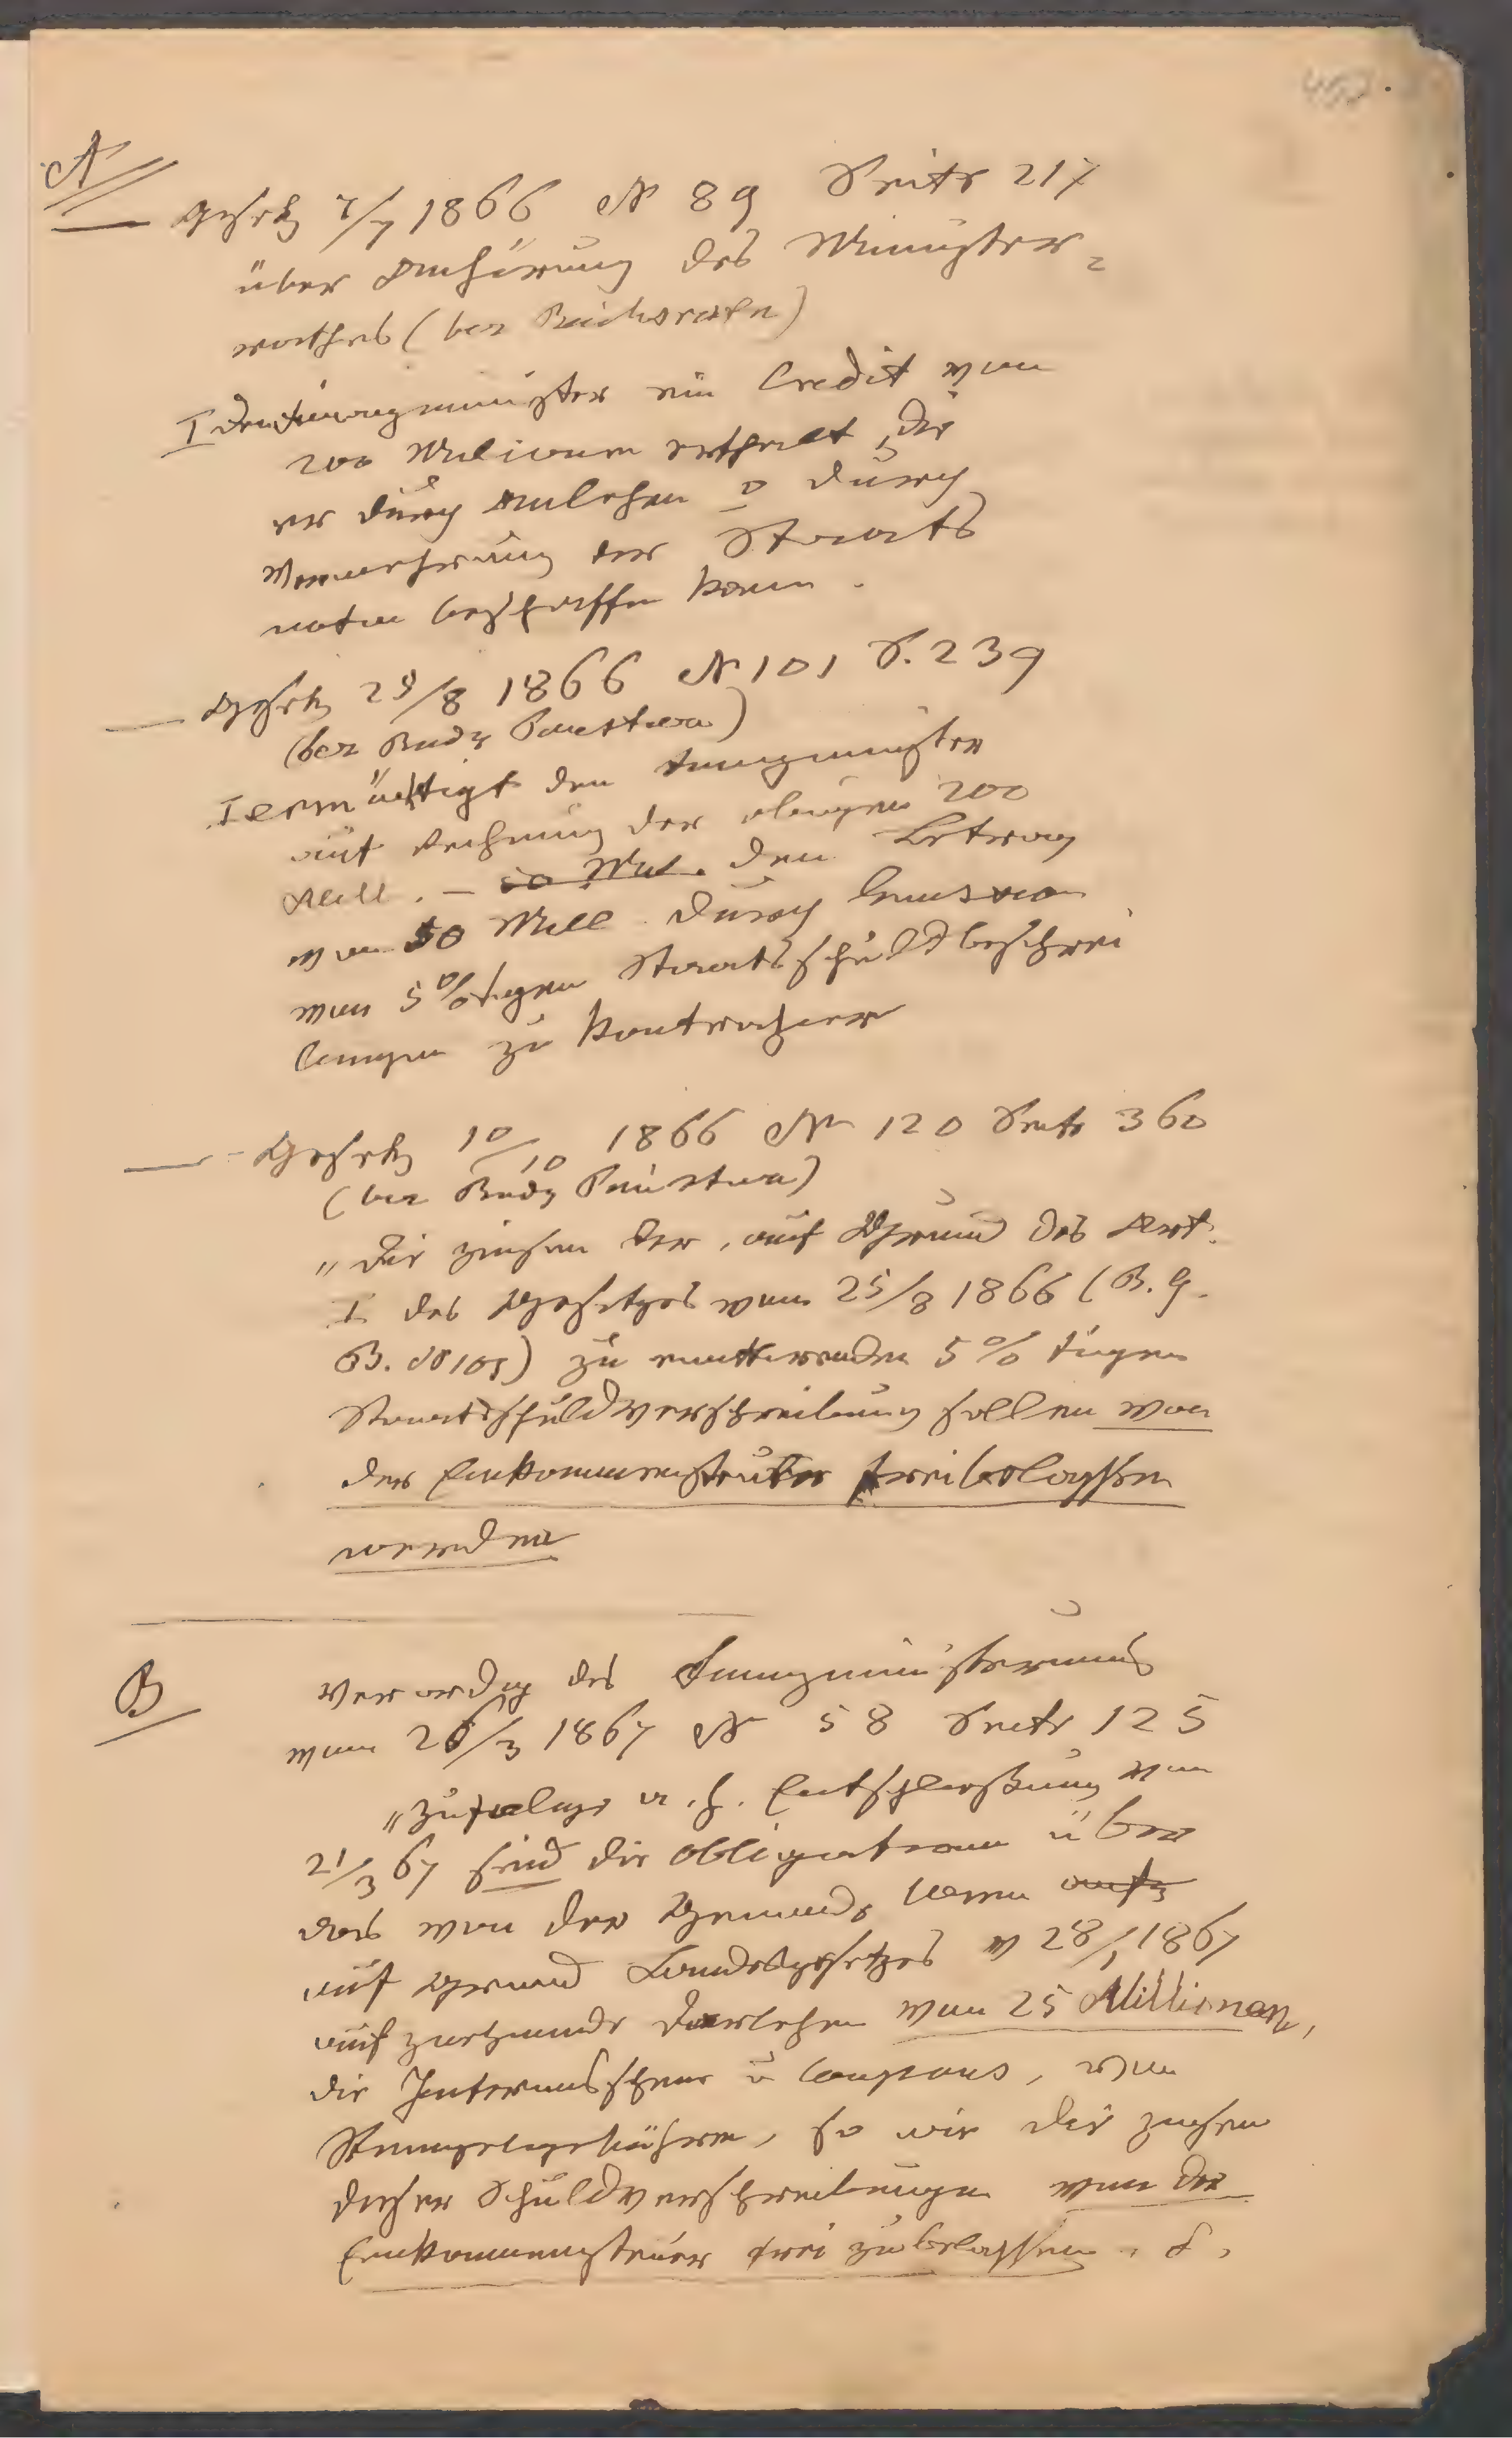 A
Gesetz 7/7 1866 N 89 Seite 217
über Anhörung des Minister=
rathes (bez Reichsrathe)
I Dem Finanzminister ein Credit von
200 Millionen ertheilt, die
er durch Anlehen o durch
Vermehrung der Staats
noten beschaffen kann.
Gesetz 25/8 1866 N 101 S. 239
(bez
I ermächtigt den Finanzminister
auf Rechnung der obigen 200
Mill. – 50 Mill. den Betrag
von 50 Mill durch Emission
von 5%tigen Staatsschuldverschrei
bungen zu kontrahieren
Gesetz 10/10 1866 N 120 Seite 360
(bez
"Die Zinsen der, auf Grund des Art.
I des Gesetzes vom 25/8 1866 (R. G.
B. N 101) zu emittierenden 5% tigen
Staatsschuldverschreibung sollen von
der Einkommensteuer freibelassen
werden
B
Verordng des Finanzministeriums
vom 26/3 1867 N 58 Seite 125
"Zufolge a. h. Entschließung vom
21/3 67 sind die Obligationen über
das von der Gemeinde Wien
auf Grund Landesgesetzes v 28/1 1867
aufzunehmende Darlehen von 25 Millionen,
die Interimsscheine u Coupons, von
Stempelgebühren, so wie die Zinsen
dieser Schuldverschreibungen von der
Einkommensteuer frei zu belassen.